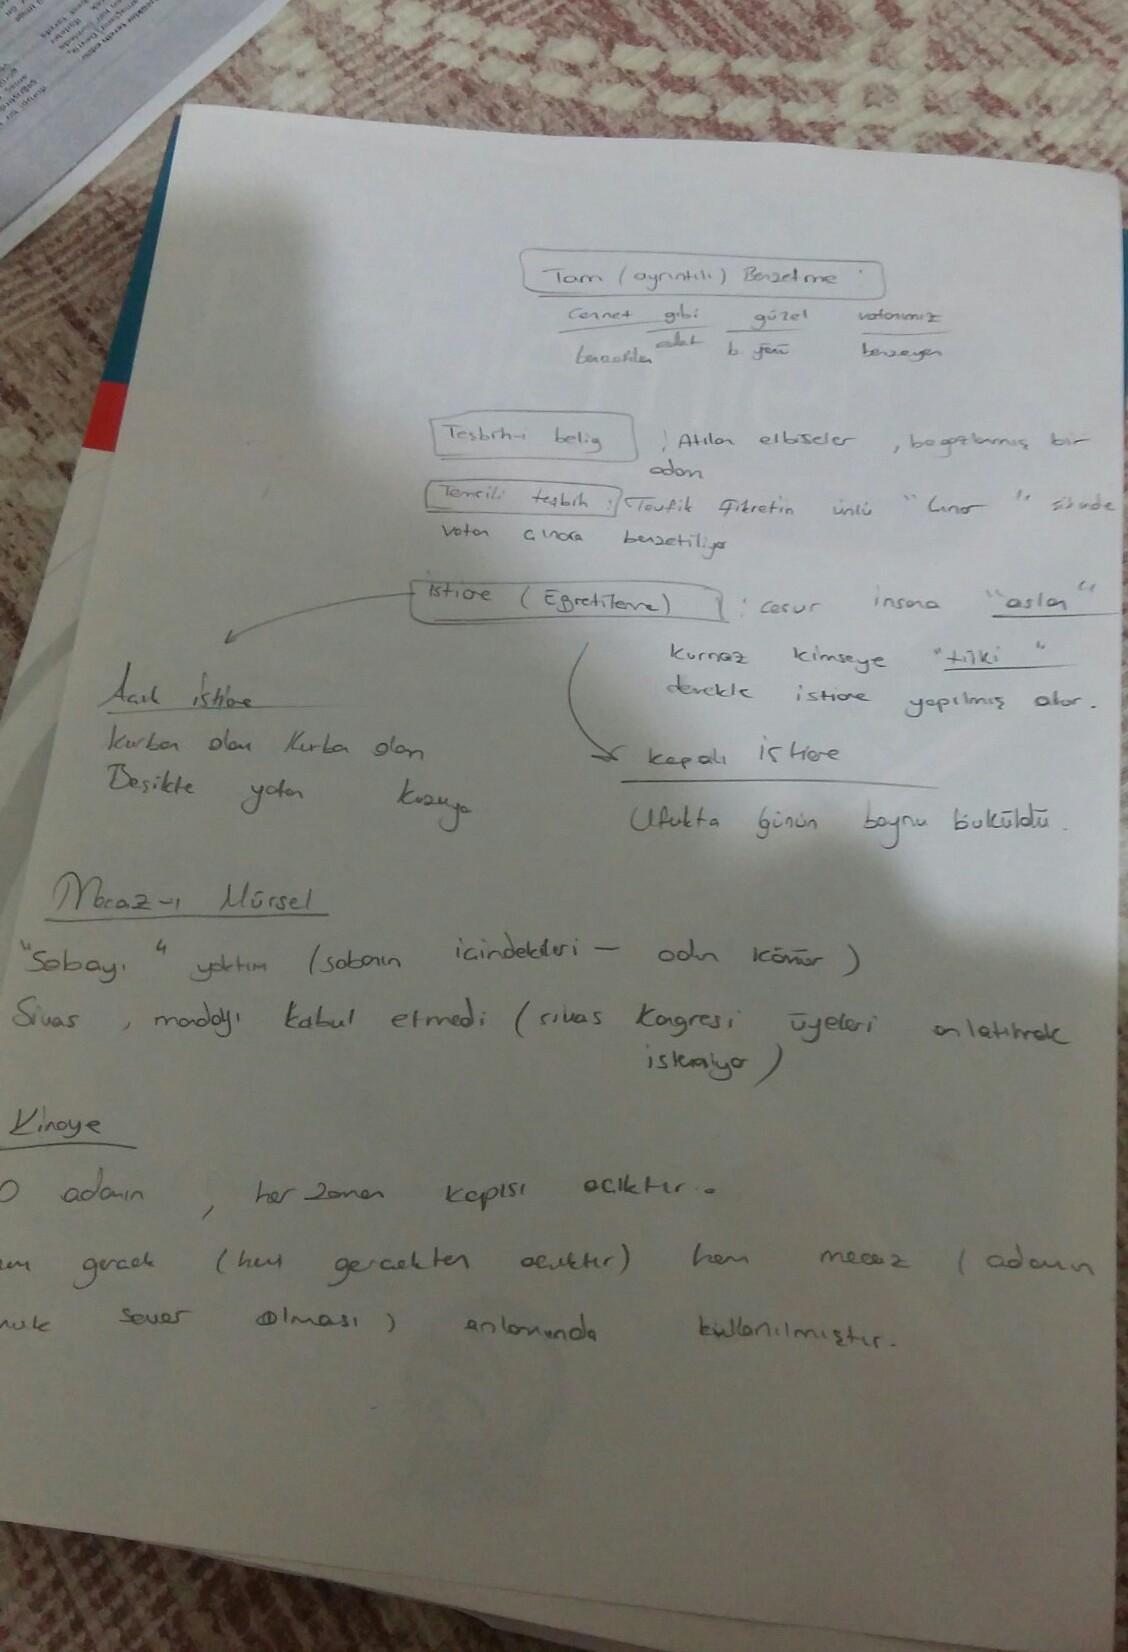 Tam (ayrıntılı) Benzetme :
cennet gibi güzel vatanımız
benzetilen edat b. yönü benzeyen
Teşbih-i belig : Atılan elbiseler , boğazlanmış bir
adam
Temsili teşbih : Tevfik Fikretin ünlü "Çınar" şiirinde
vatan çınara benzetiliyor
istiare (Eğretileme) : cesur insana "aslan"
kurnaz kimseye "tilki"
demekle istiare yapılmış olur.
Açık istiare
Kurban olam Kurban olam
Beşikte yatan kuzuya
kapalı istiare
Ufukta günün boynu büküldü.
Mecaz-ı Mürsel
"Sobayı" yaktım (sobanın içindekileri - odun kömür)
Sivas , mandayı kabul etmedi (sivas kongresi üyeleri anlatılmak
isteniyor)
Kinaye
O adamın , her zaman kapısı açıktır.
gerçek (hem gerçekten açıktır) hem mecaz (adamın
sever olması) anlamında kullanılmıştır.